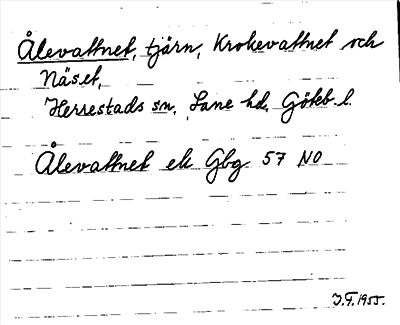 Ålevattnet, tjärn, Krokevattnet och
Näset,
Herrestads sn, Lane hd, Göteb. l.
Ålevattnet ek Gbg 57 NO
J.G. 1955.